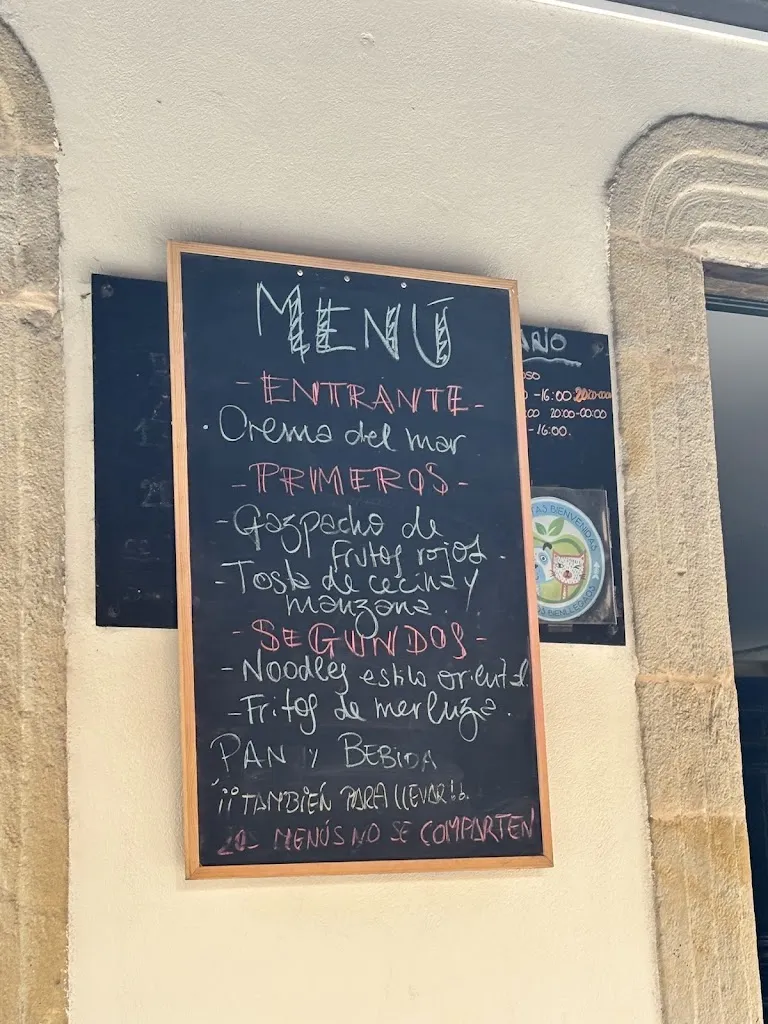 MENÚ
- ENTRANTE -
· Crema del mar
- PRIMEROS -
- Gazpacho de
frutos rojos -
- Tosta de cecina y
manzana.
- SEGUNDOS -
- Noodles estilo oriental
- Fritos de merluza.
PAN Y BEBIDA
¡¡TAMBIÉN PARA LLEVAR!!
LOS MENÚS NO SE COMPARTEN
ARIO
-16:00 20:00-00:00
00 20:00-00:00
-16:00.
TAS BIENVENIDAS
OS BIENLLEGAOS